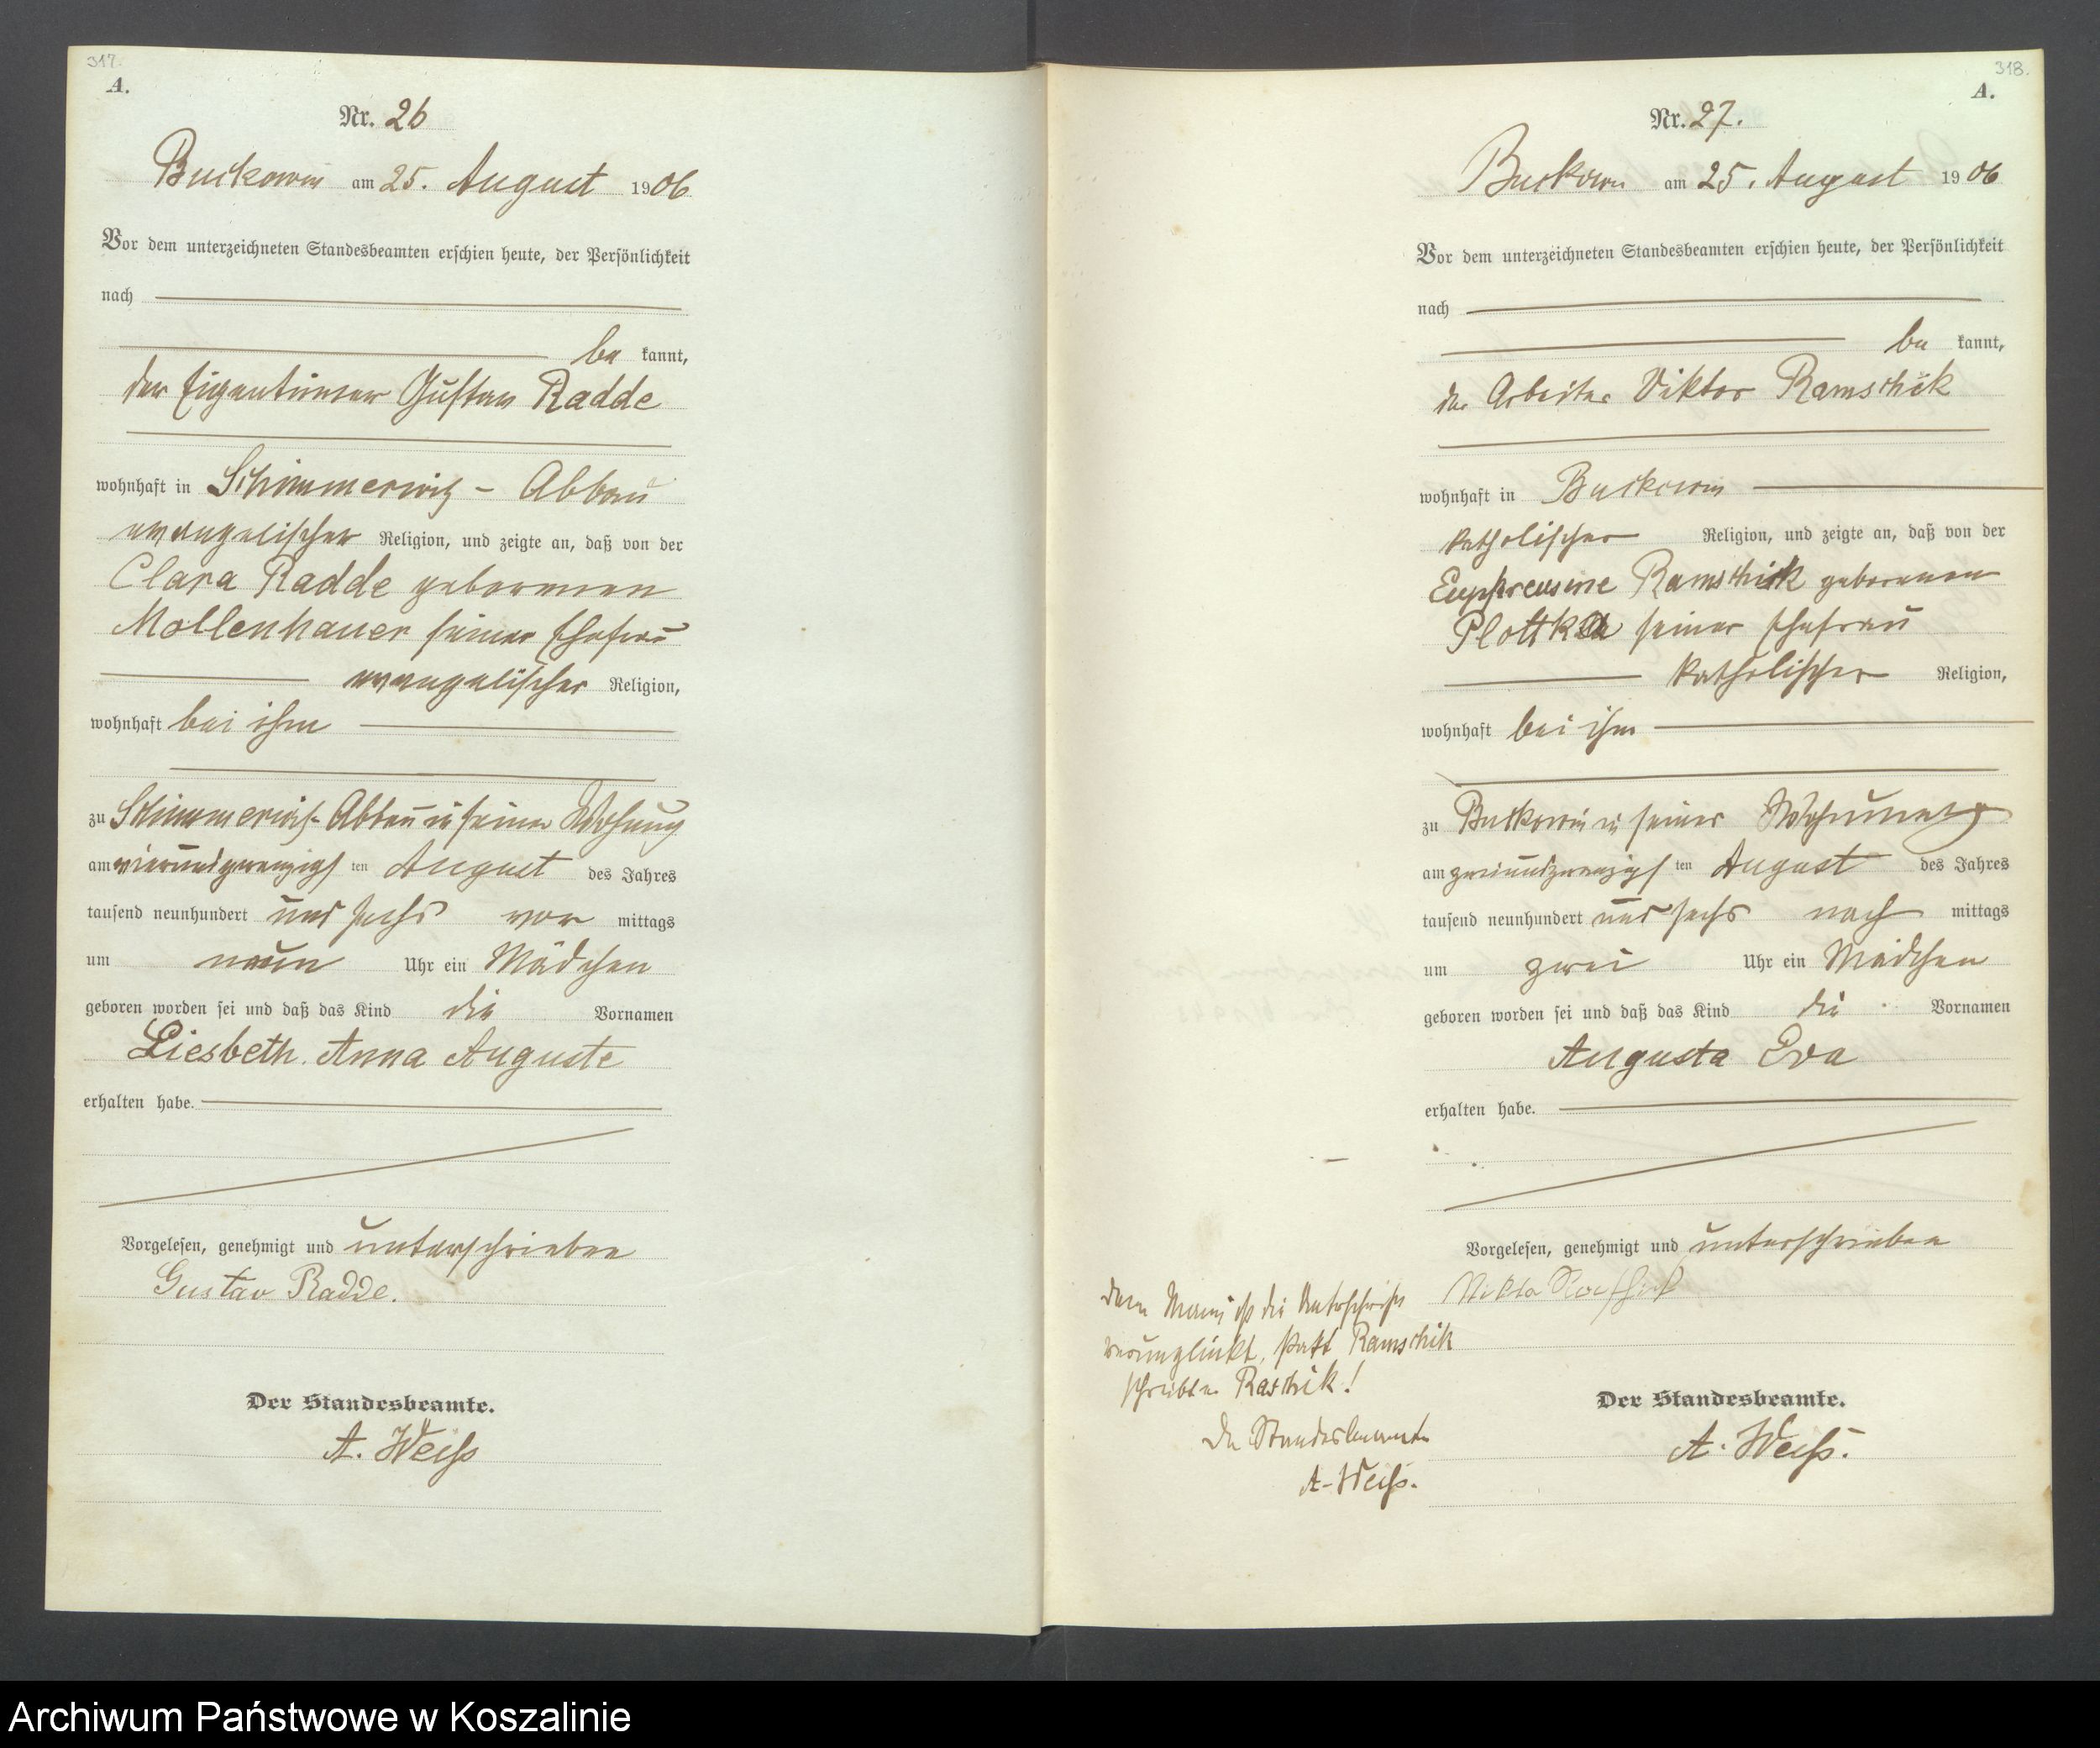 317.
A.
Nr. 26
Buckowin am 25. August 1906
Vor dem unterzeichneten Standesbeamten erschien heute, der Persönlichkeit
nach
be kannt,
der Eigentümer Gustav Radde
wohnhaft in Schimmerwitz - Abbau
evangelischer Religion, und zeigte an, daß von der
Clara Radde geborenen
Mollenhauer seiner Ehefrau
evangelischer Religion,
wohnhaft bei ihm
zu Schimmerwitz-Abbau in seiner Wohnung
am vierundzwanzigsten August des Jahres
tausend neunhundert und sechs vor mittags
um neun Uhr ein Mädchen
geboren worden sei und daß das Kind die Vornamen
Liesbeth Anna Auguste
erhalten habe.
Vorgelesen, genehmigt und unterschrieben
Gustav Radde.
Der Standesbeamte.
A. Weiß
318.
A.
Nr. 27.
Buckowin am 25. August 1906
Vor dem unterzeichneten Standesbeamten erschien heute, der Persönlichkeit
nach
be kannt,
der Arbeiter Viktor Ramschik
wohnhaft in Buckowin
katholischer Religion, und zeigte an, daß von der
Ramschik geborenen
Plottka seiner Ehefrau
katholischer Religion,
wohnhaft bei ihm
zu Buckowin in seiner Wohnung
am zweiundzwanzigsten August des Jahres
tausend neunhundert und sechs nach mittags
um zwei Uhr ein Mädchen
geboren worden sei und daß das Kind die Vornamen
Augusta Eva
erhalten habe.
Vorgelesen, genehmigt und unterschrieben
Dem Mann ist die Unterschrift
verunglückt, statt Ramschik
schreibt er Raschik!
Der Standesbeamte
A. Weiß.
Der Standesbeamte.
A. Weiß.
Archiwum Państwowe w Koszalinie